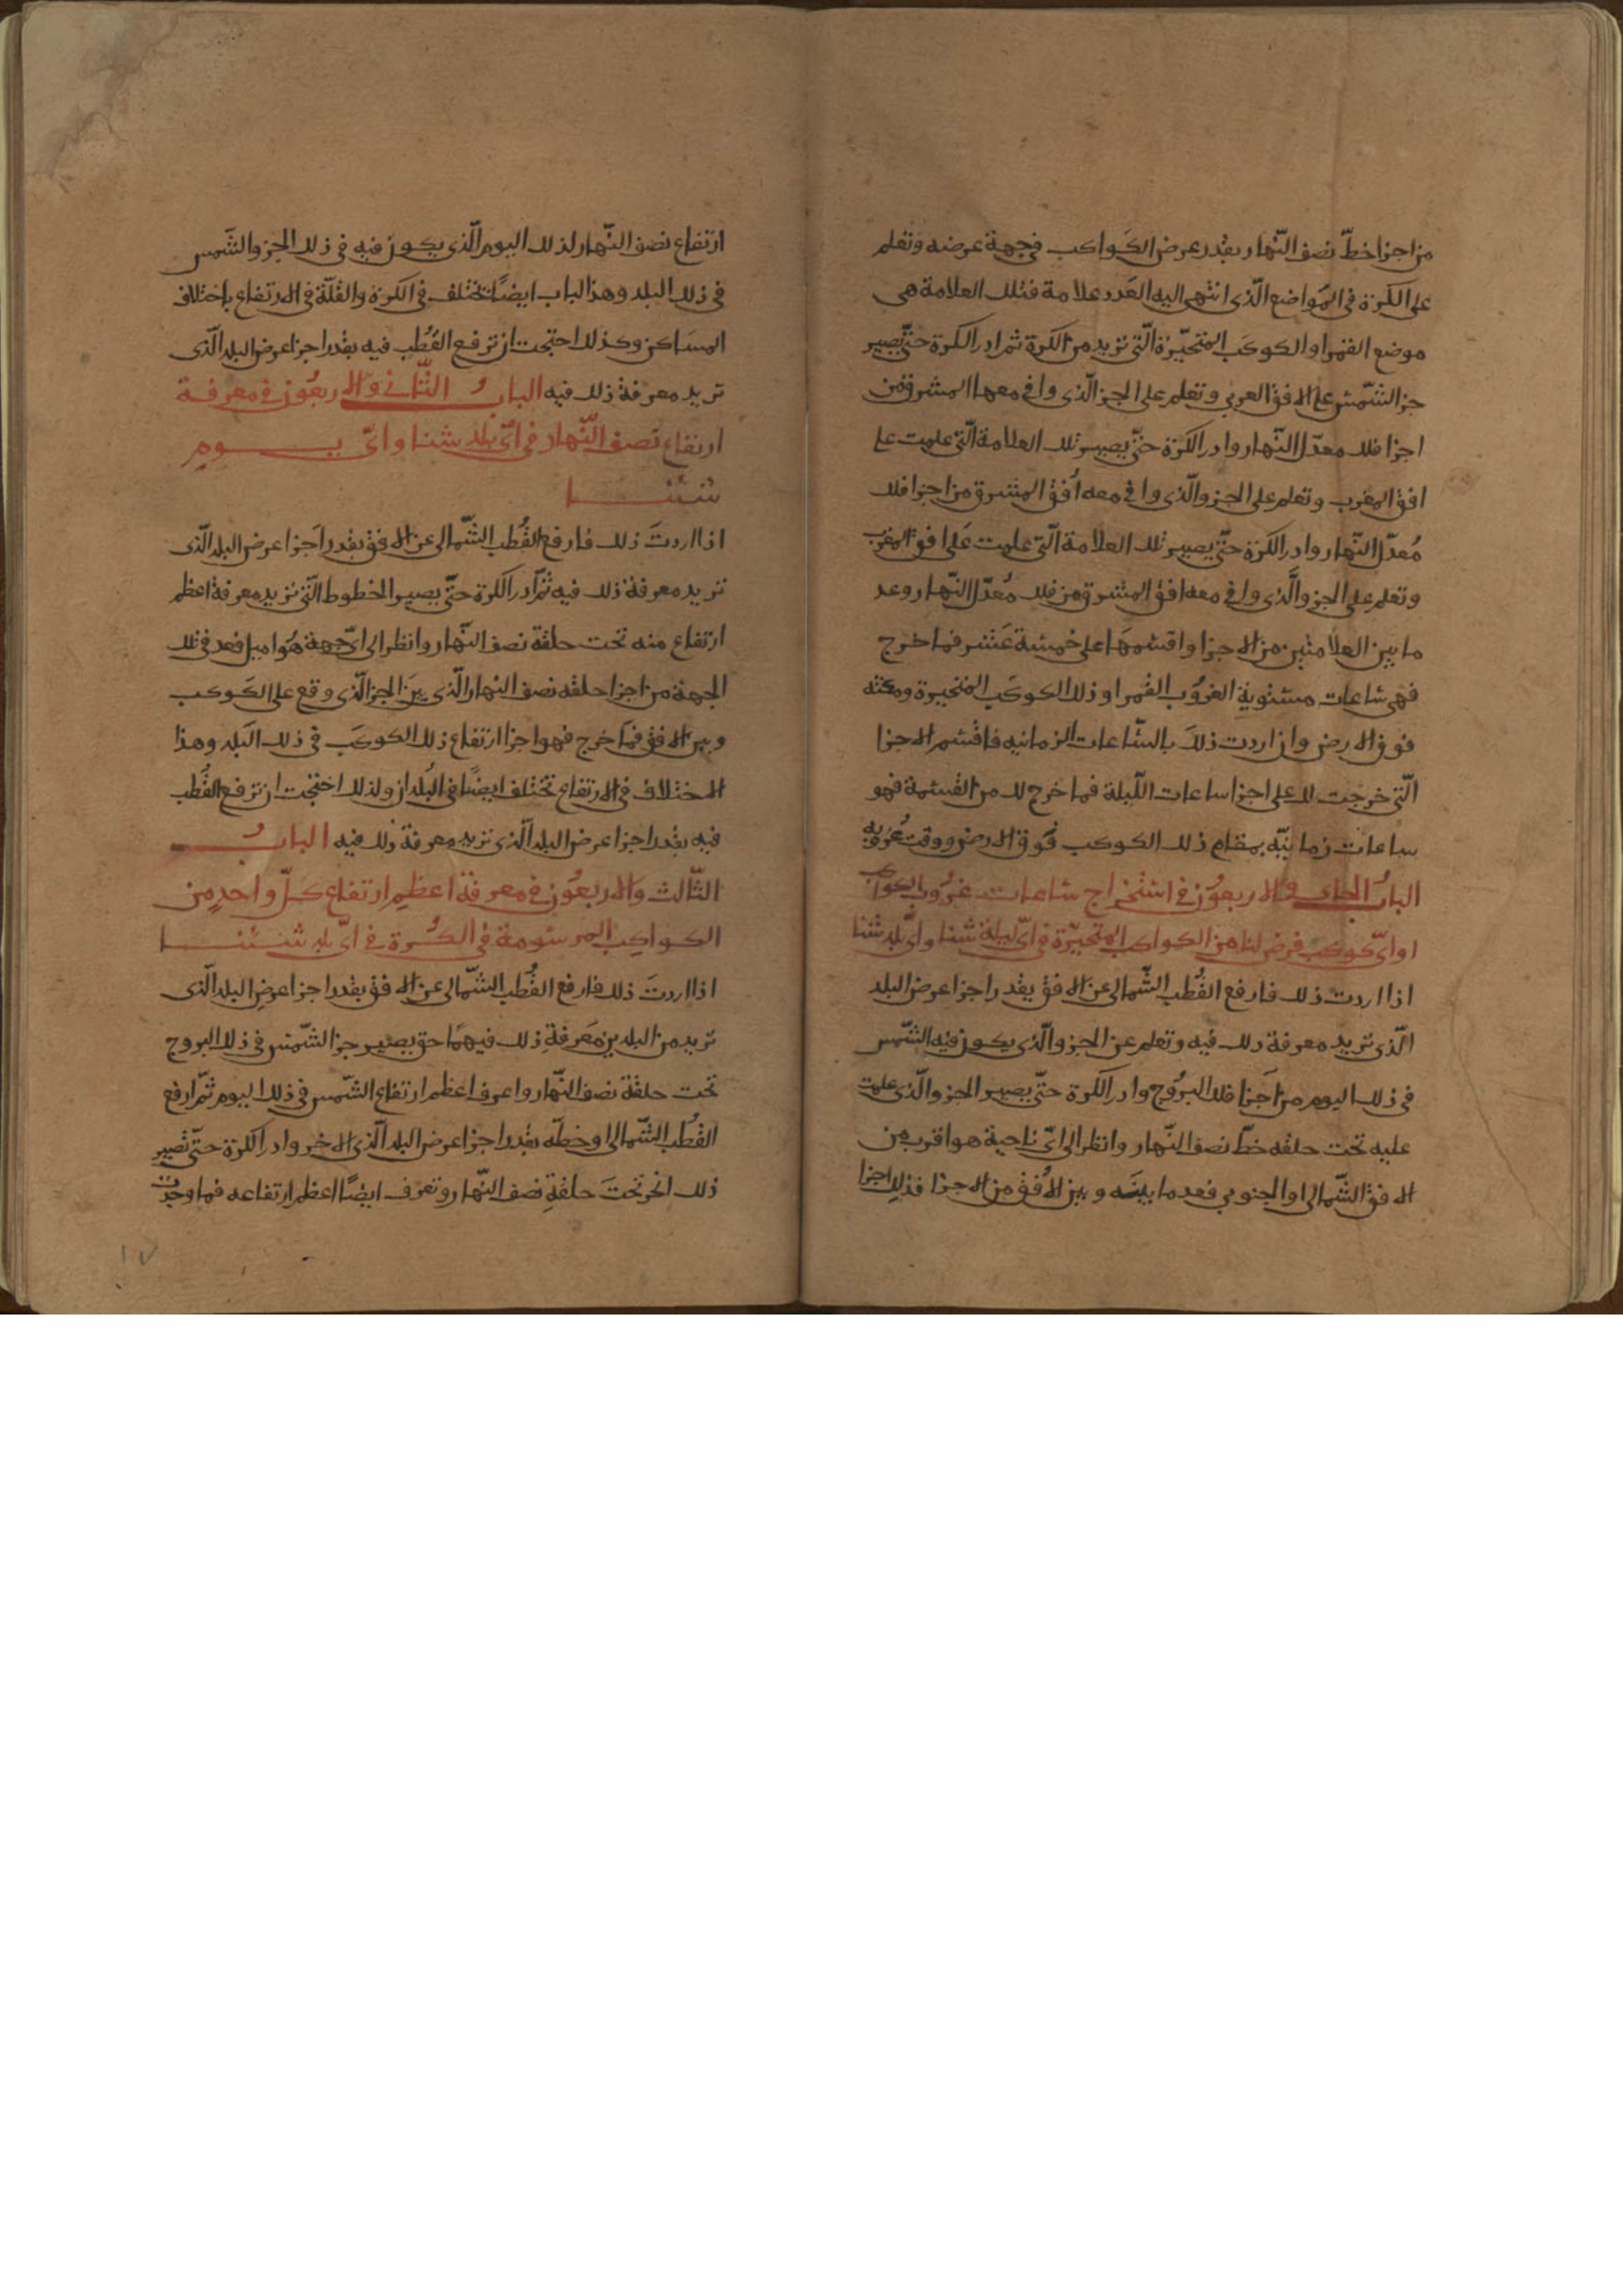 من اجزا خطّ نصف النّهار بقدر عرض الكواكب فى جهة عرضه وتعلم
على الكرة فى المواضع الّذى انتهى اليه العدد علامة فتلك العلامة هى
موضع القمر او الكوكب المتحيّرة الّتى تريد من الكرة ثم ادر الكرة حتّى يصير
جز الشّمس على الافق الغربى وتعلم على الجز الّذى وافى معها المشرق من
اجزا فلك معدّل النّهار وادر الكرة حتّى يصير تلك العلامة الّتى علمت على
افق المغرب وتعلم على الجزو الّذى وافى معه أفق المشرق من اجزا فلك
مُعدّل النّهار وادر الكرة حتّى يصير تلك العلامة الّتى علمت على افق المغرب
وتعلم على الجزو الّذى وافى معه افق المشرق من فلك مُعدّل النّهار وعد
ما بين العلامتين من الاجزا واقسمها على خمسة عشر فما خرج
فهى ساعات مستوية الغروب القمر او ذلك الكوكب المتحيرة ومكثه
فوق الارض وان اردت ذلك بالسّاعات الزمانيه فاقسم الاجزا
الّتى خرجت لك على اجزا ساعات اللّيلة فما خرج لك من القسمة فهو
ساعات زمانيّه بمقام ذلك الكوكب فوق الارض ووقت غروبه
البابُ الحادى والاربعون فى استخراج ساعات غروب الكواكب
او اىّ كوكب فرض لنا من الكواكب المتحيّرة فى اىّ ليلة شئنا واىّ بلد شئنا
اذا اردت ذلك فارفع القُطب الشّمالى عن الافق بقدر اجزا عرض البلد
الّذى تريد معرفة ذلك فيه وتعلم عن الجزو الّذى يكون فيه الشّمس
فى ذلك اليوم من اجزا فلك البروج وادر الكرة حتّى يصير الجزو الّذى علمت
عليه تحت حلقه خطّ نصف النّهار وانظر الى اىّ ناحية هو اقرب من
الافق الشّمالى او الجنوبى فعد ما بينه وبين الأفق من الاجزا فذلك اجزا
ارتفاع نصف النّهار لذلك اليوم الّذى يكون فيه فى ذلك الجز والشّمس
فى ذلك البلد وهذا الباب ايضًا تختلف فى الكرة والقلّة فى الارتفاع باختلاف
المساكن وكذلك احتجت ان ترفع القُطب فيه بقدر اجزا عرض البلد الّذى
تريد معرفة ذلك فيه البابُ الثّانى والاربعون فى معرفة
ارتفاع نصف النّهار فى اىّ بلد شئنا واىّ يوم
شئنا
اذا اردتَ ذلك فارفع القُطب الشّمالى عن الافق بقدر اجزا عرض البلد الّذى
تريد معرفة ذلك فيه ثمّ ادر الكرة حتّى يصير الخطوط الّتى تريد معرفة اعظم
ارتفاع منه تحت حلقة نصف النّهار وانظر الى اىّ جهة هُو اميل فعد فى تلك
الجهة من اجزا حلقه نصف النهار الّذى بين الجز الّذى وقع على الكوكب
وبين الافق فما خرج فهو اجزا ارتفاع ذلك الكوكب فى ذلك البلد وهذا
الاختلاف فى الارتفاع تختلف ايضًا فى البُلدان ولذلك احتجت ان ترفع القُطب
فيه بقدر اجزا عرض البلد الّذى تريد معرفة ذلك فيه البابُ
الثّالث والاربعون فى معرفة اعظم ارتفاع كلّ واحدٍ من
الكواكب المرسُومة فى الكُرة فى اىّ بلد شئنا
اذا اردتَ ذلك فارفع القُطب الشّمالى عن الافق بقدر اجزا عرض البلد الّذى
تريد من البلدين معرفة ذلك فيهما حتى يصير جز الشّمس فى ذلك البروج
تحت حلقة نصف النّهار واعرف اعظم ارتفاع الشّمس فى ذلك اليوم ثمّ ارفع
القُطب الشّمالى او خطّه بقدر اجزا عرض البلد الّذى الاخر وادر الكرة حتّى تصير
ذلك تحت حلقةِ نصف النّهار وتعرف ايضًا اعظم ارتفاعه فما وجدت
١٧